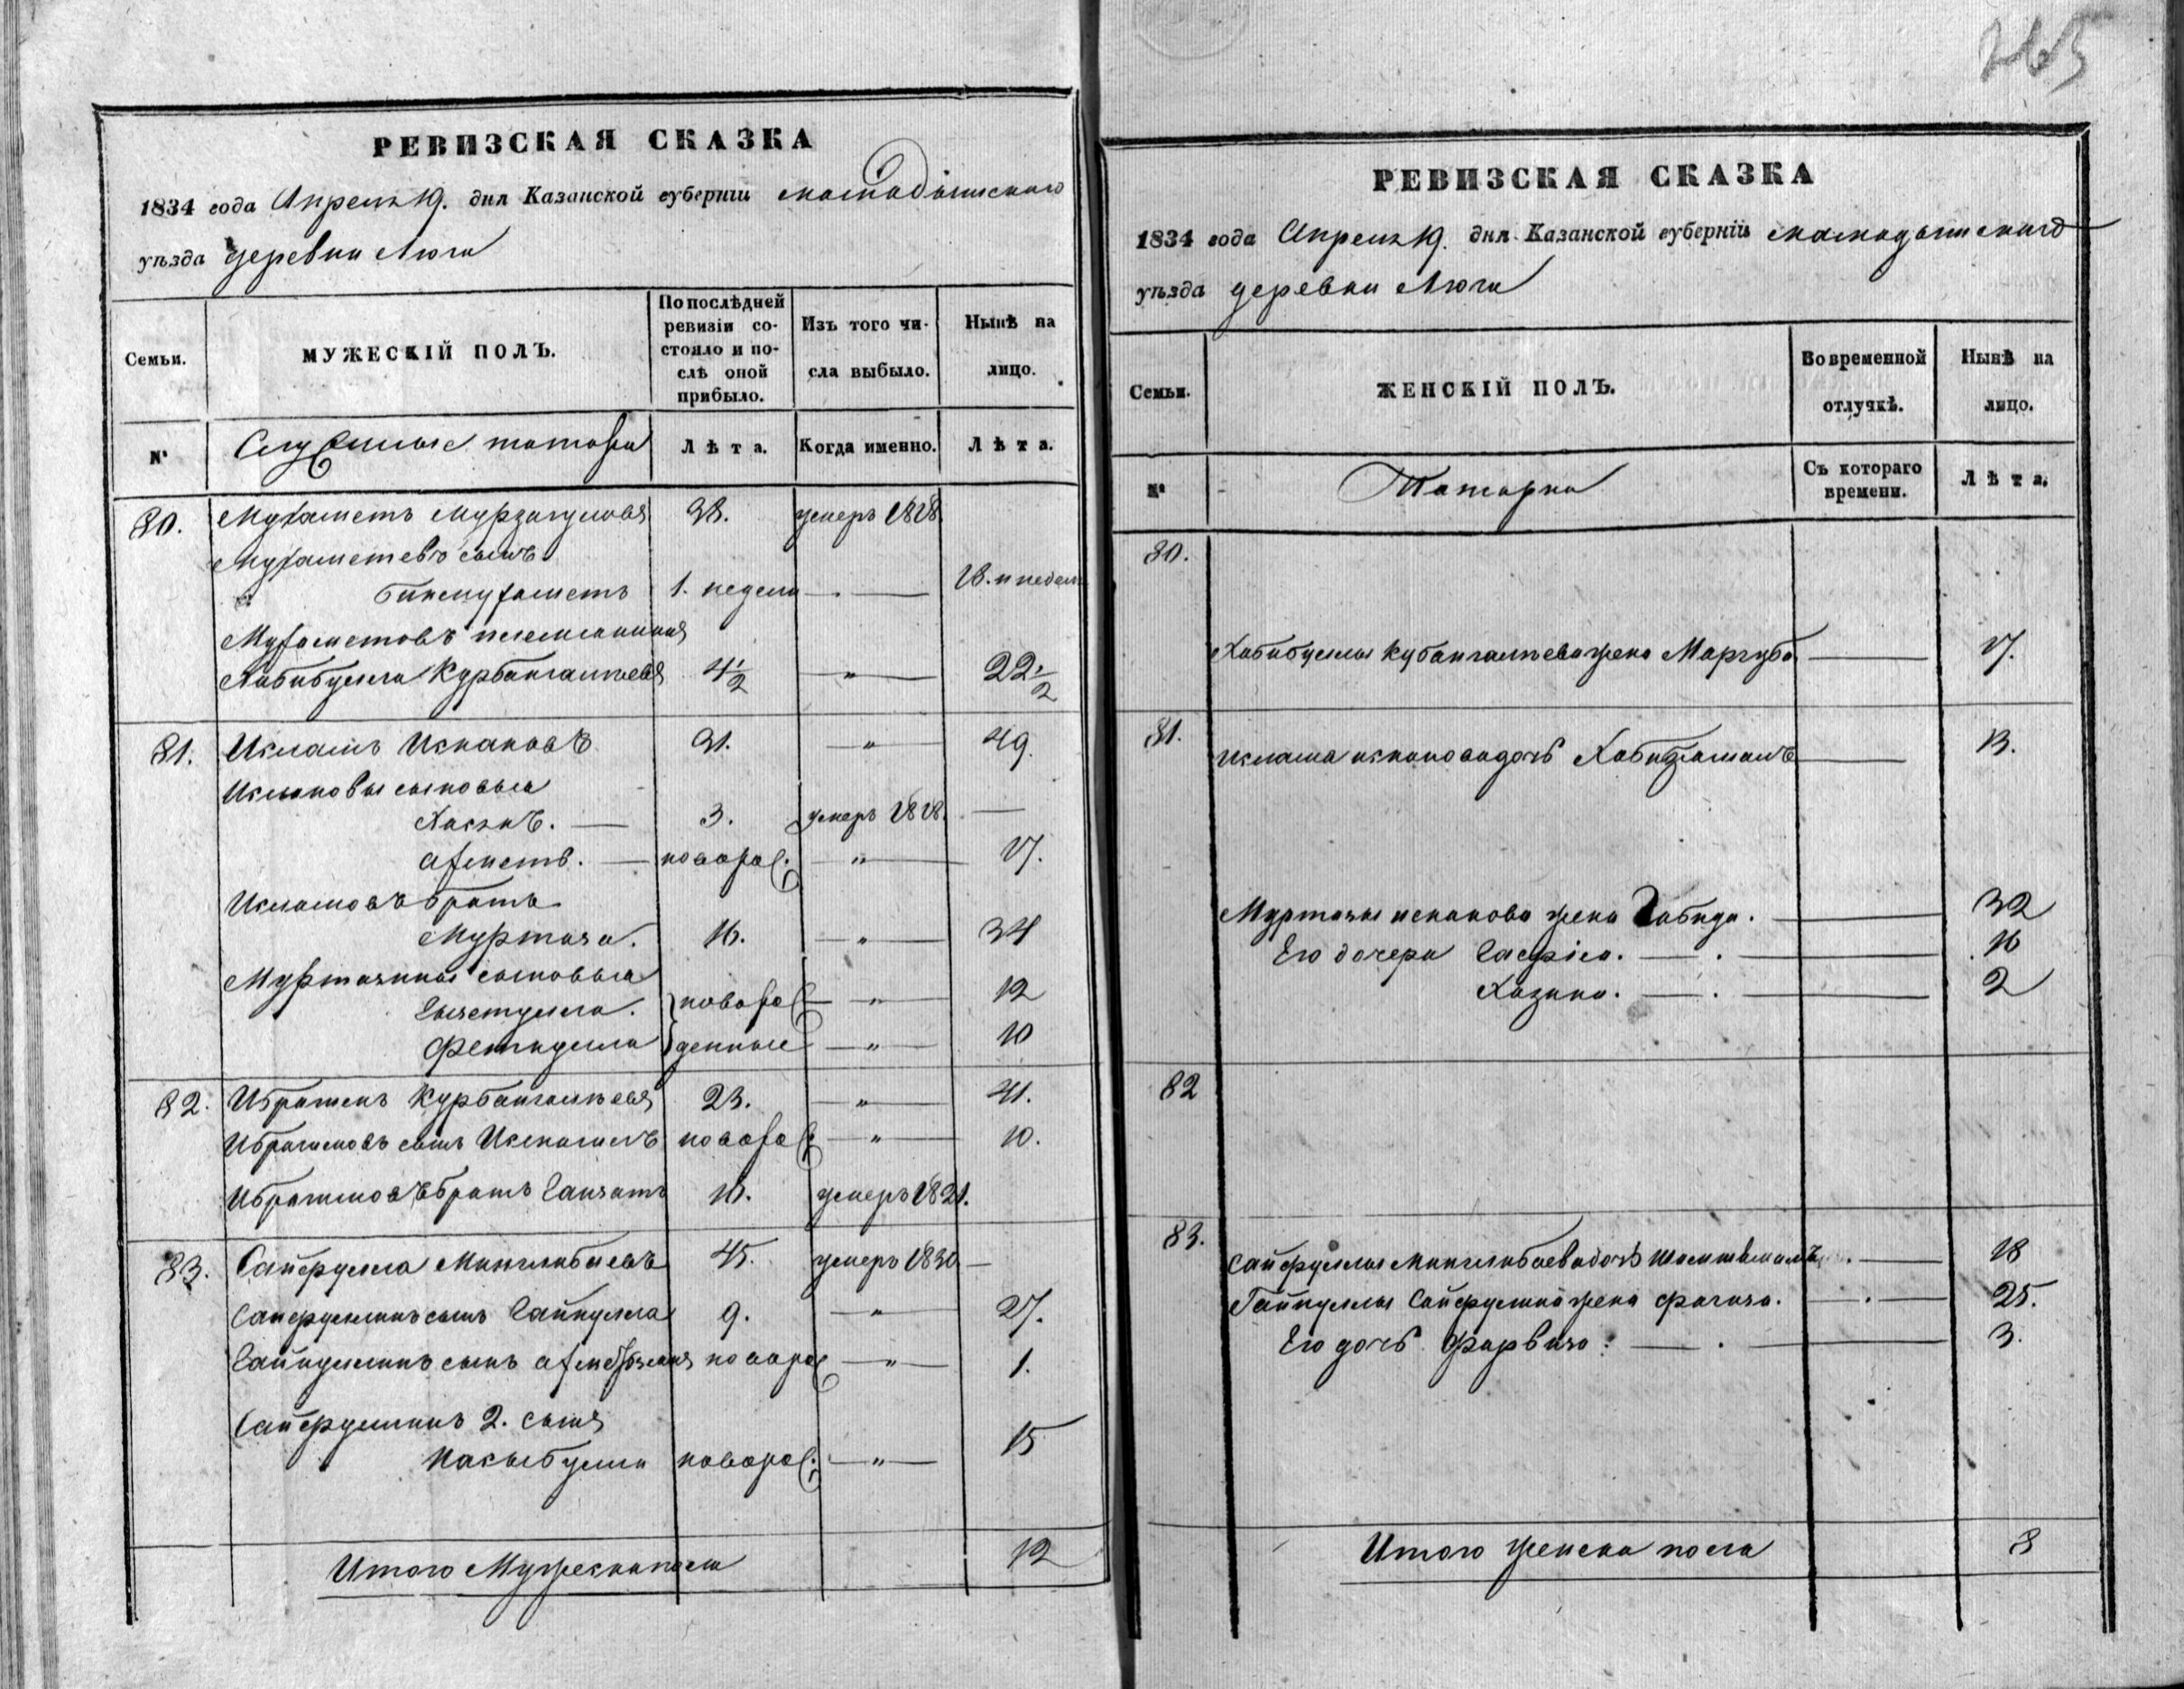 265
РЕВИЗСКАЯ СКАЗКА
1834 года Апреля 19. дня Казанской губерніи мамадышскаго
уѣзда деревни Люги
Семьи.
МУЖЕСКІЙ ПОЛЪ.
По послѣдней ревизіи состояло и послѣ оной прибыло.
Изъ того числа выбыло.
Нынѣ на лицо.
№
Служилые татара
Лѣта.
Когда именно.
Лѣта.
80. Мухаметъ Мурзагуловъ 38. умеръ 1818.
Мухаметевъ сынъ
Бикмухаметъ 1. недели — 18. и недел
Мухаметовъ племянникъ
Хабибулла Курбангалѣевъ 4 1/2 — " — 22 1/2
81. Исламъ Искаковъ 31. — " — 49.
Исламовы сыновья
Хасянъ. — 3. умеръ 1818. —
Ахметъ. — новорож. — " — 17.
Исламовъ братъ
Муртаза. 16. — " — 34
Муртазины сыновья
новорож — " — 12
Феткулла денные — " — 10
82. Ибрагимъ Курбангалѣевъ 23. — " — 41.
Ибрагимовъ сынъ Исмагилъ новорож — " — 10.
Ибрагимовъ братъ 16. умеръ 1821.
83. Сайфулла Манглибаевъ 45. умеръ 1830 —
Сайфуллинъ сынъ Гайнулла 9. — " — 27.
Гайнуллинъ сынъ новорож — " — 1.
Сайфуллинъ 2. сынъ
Насыбулла новорож. — " — 15
Итого Мужеска пола 12
РЕВИЗСКАЯ СКАЗКА
1834 года Апреля 19. дня Казанской губерніи мамадышскаго
уѣзда деревни Люги
Семьи.
ЖЕНСКІЙ ПОЛЪ.
Во временной отлучкѣ.
Нынѣ на лицо.
№
Татарки
Съ котораго времени.
Лѣта.
80.
Хабибуллы Кубангалѣева жена Маргуба — 17.
81. Ислама искакова дочь — 13.
Муртазы искакова жена Габида. — 32
Его дочери Сафіа. — 16
Хазина. — 2
82
83. Сайфуллы Манглибаева дочь — 18
Гайнуллы Сайфуллина жена Фагиза. — 25.
Его дочь Фарвиза: — 3.
Итого женска пола 8